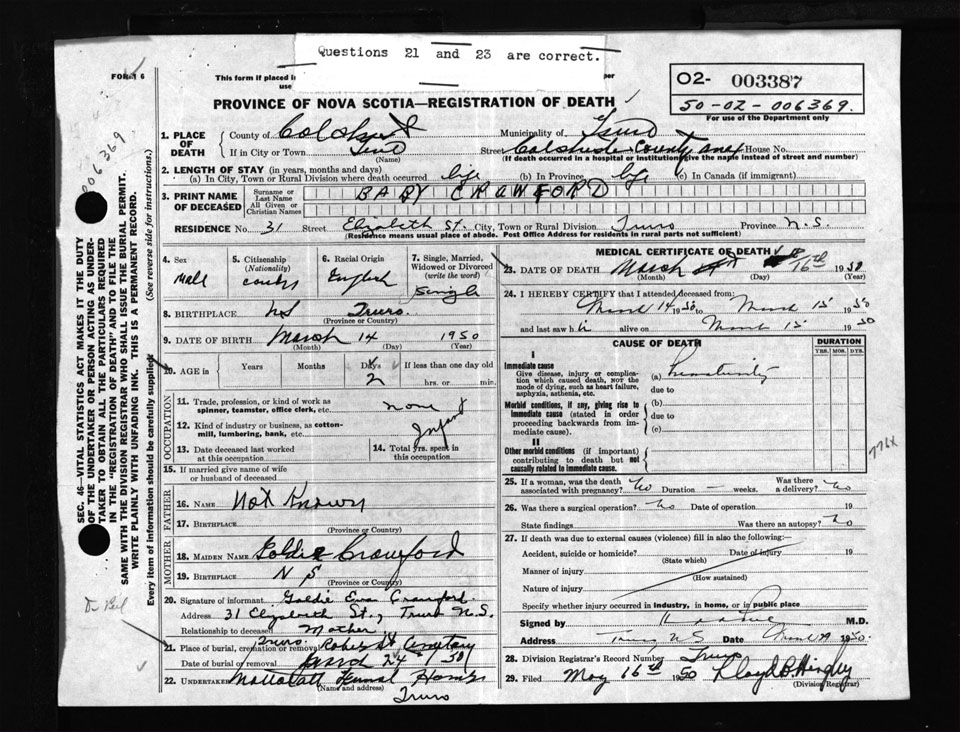 Questions 21 and 23 are correct.
FORM 6
This form if placed i
use
O2- 003387
50-02-006369.
For use of the Department only
PROVINCE OF NOVA SCOTIA—REGISTRATION OF DEATH
006369
SEC. 46—VITAL STATISTICS ACT MAKES IT THE DUTY
OF THE UNDERTAKER OR PERSON ACTING AS UNDER-
TAKER TO OBTAIN ALL THE PARTICULARS REQUIRED
IN THE "REGISTRATION OF DEATH" AND TO FILE THE
SAME WITH THE DIVISION REGISTRAR WHO SHALL ISSUE THE BURIAL PERMIT.
WRITE PLAINLY WITH UNFADING INK. THIS IS A PERMANENT RECORD.
Every item of information should be carefully supplied. (See reverse side for instructions.)
1. PLACE OF DEATH County of Colchester Municipality of Truro
If in City or Town Street Colchester County House No.
(Name) (If death occurred in a hospital or institution, give the name instead of street and number)
2. LENGTH OF STAY (in years, months and days)
(a) In City, Town or Rural Division where death occurred life (b) In Province life (c) In Canada (if immigrant)
3. PRINT NAME OF DECEASED
Surname or Last Name BABY CRAWFORD
All Given or Christian Names
RESIDENCE No. 31 Street Elizabeth St. City, Town or Rural Division Truro Province N.S.
(Residence means usual place of abode. Post Office Address for residents in rural parts not sufficient)
4. Sex Male
5. Citizenship (Nationality)
6. Racial Origin English
7. Single, Married, Widowed or Divorced (write the word) Single
8. BIRTHPLACE N S Truro.
(Province or Country)
9. DATE OF BIRTH March 14 1950
(Month) (Day) (Year)
10. AGE in Years Months Days 2 If less than one day old hrs. or min.
OCCUPATION
11. Trade, profession, or kind of work as spinner, teamster, office clerk, etc. none
12. Kind of industry or business, as cotton-mill, lumbering, bank, etc. Infant
13. Date deceased last worked at this occupation
14. Total yrs. spent in this occupation
15. If married give name of wife or husband of deceased
FATHER
16. NAME Not Known
17. BIRTHPLACE
(Province or Country)
MOTHER
18. MAIDEN NAME Goldie Crawford
19. BIRTHPLACE N S
(Province or Country)
20. Signature of informant Goldie Eva Crawford
Address 31 Elizabeth St., Truro N.S.
Relationship to deceased Mother
21. Place of burial, cremation or removal Truro. Robie St Cemetary
Date of burial or removal March 24 50
22. UNDERTAKER Funeral Home
(Name and address)
Truro
MEDICAL CERTIFICATE OF DEATH
23. DATE OF DEATH March 16th 1950
(Month) (Day) (Year)
24. I HEREBY CERTIFY that I attended deceased from:
March 14 1950 to March 15 1950
and last saw h i alive on March 15 1950
CAUSE OF DEATH
DURATION
YRS. MOS. DAYS
I
Immediate cause
Give disease, injury or complication which caused death, NOT the mode of dying, such as heart failure, asphyxia, asthenia, etc.
(a) Prematurity
due to
Morbid conditions, if any, giving rise to immediate cause (stated in order proceeding backwards from immediate cause).
(b)
due to
(c)
II
Other morbid conditions (if important) contributing to death but not causally related to immediate cause.
776X
25. If a woman, was the death associated with pregnancy? No Duration — weeks. Was there a delivery? No
26. Was there a surgical operation? No Date of operation 19
State findings Was there an autopsy? No
27. If death was due to external causes (violence) fill in also the following:—
Accident, suicide or homicide? Date of injury 19
(State which)
Manner of injury
(How sustained)
Nature of injury
Specify whether injury occurred in industry, in home, or in public place
Signed by M.D.
Address Truro N S Date 1950.
28. Division Registrar's Record Number Truro
29. Filed May 16th 1950
(Division Registrar)